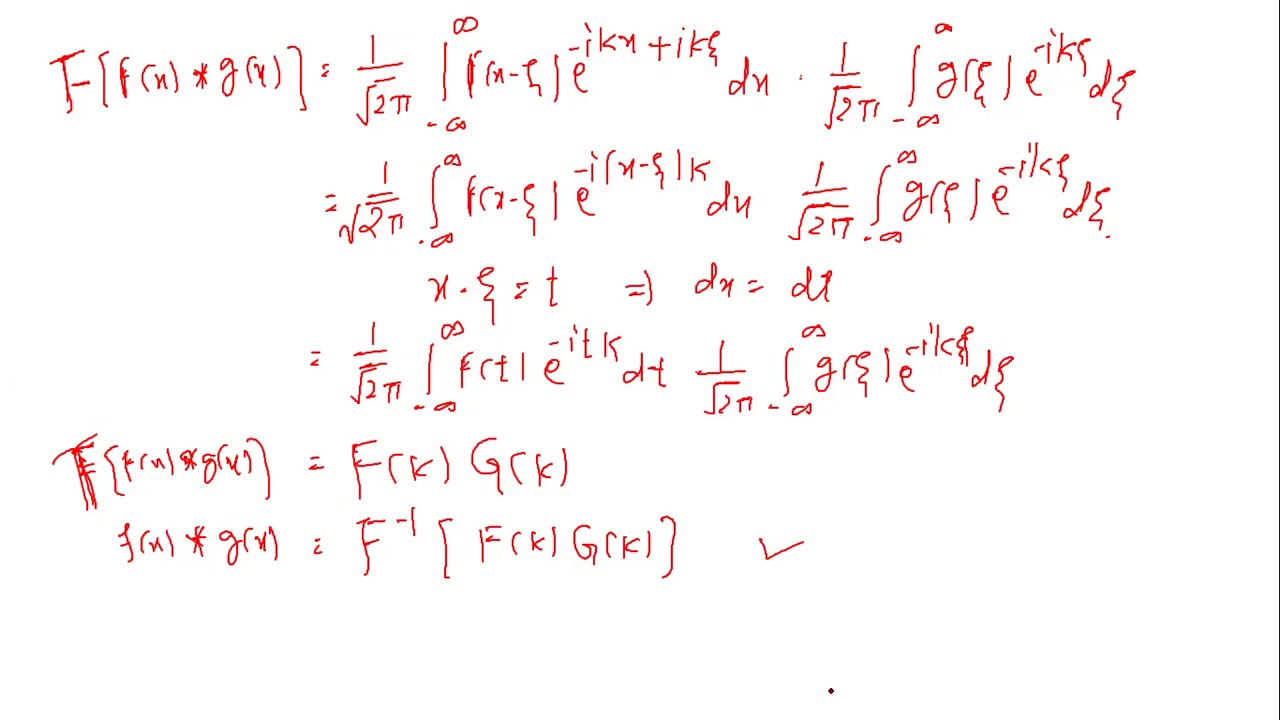 F{f(x) * g(x)} = 1/√2π ∫_{-∞}^{∞} f(x-ξ) e^{-ikx+ikξ} dx · 1/√2π ∫_{-∞}^{∞} g(ξ) e^{-ikξ} dξ
= 1/√2π ∫_{-∞}^{∞} f(x-ξ) e^{-i(x-ξ)k} dx 1/√2π ∫_{-∞}^{∞} g(ξ) e^{-ikξ} dξ.
x-ξ = t ⇒ dx = dt
= 1/√2π ∫_{-∞}^{∞} f(t) e^{-itk} dt 1/√2π ∫_{-∞}^{∞} g(ξ) e^{-ikξ} dξ
F{f(x) * g(x)} = F(k) G(k)
f(x) * g(x) = F^{-1} { F(k) G(k) } ✓